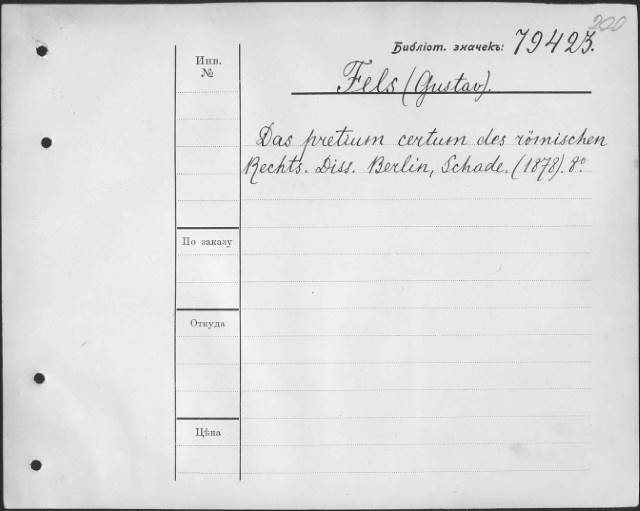 200
Библіот. значекъ: 79423.
Инв.
№
Fels (Gustav).
Das pretium certum des römischen
Rechts. Diss. Berlin, Schade. (1878). 8º.
По заказу
Откуда
Цѣна